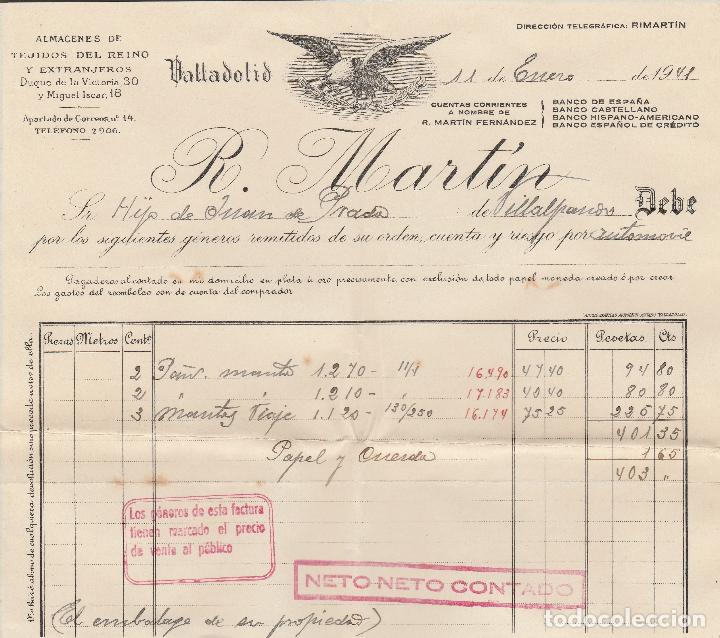 ALMACENES DE
TEJIDOS DEL REINO
Y EXTRANJEROS
Duque de la Victoria, 30
y Miguel Iscar, 18
Apartado de Correos, nº 14.
TELÉFONO 2906.
DIRECCIÓN TELEGRÁFICA: RIMARTÍN
Valladolid 11 de Enero de 1941
CUENTAS CORRIENTES
A NOMBRE DE
R. MARTÍN FERNÁNDEZ
BANCO DE ESPAÑA
BANCO CASTELLANO
BANCO HISPANO-AMERICANO
BANCO ESPAÑOL DE CRÉDITO
R. Martín
Sr. Hijo de Juan de Prada de Villalpando Debe
por los siguientes géneros remitidos de su orden, cuenta y riesgo por automovil
Pagaderos al contado en mi domicilio en plata ú oro precisamente con exclusión de todo papel moneda creado ó por crear
Los gastos del reembolso son de cuenta del comprador
Piezas Metros Conto Precio Pesetas Cts
2 Pañ. manta 1.270 - 11/1 16.490 47 40 94 80
2 " " 1.210 - " 17.183 40 40 80 80
3 Mantas Viaje 1.120 - 130/250 16.174 75 25 225 75
401 35
Papel y Cuerda 1 65
403 "
Los géneros de esta factura
tienen marcado el precio
de venta al público
NETO-NETO CONTADO
(El embalage de su propiedad)
todocoleccion